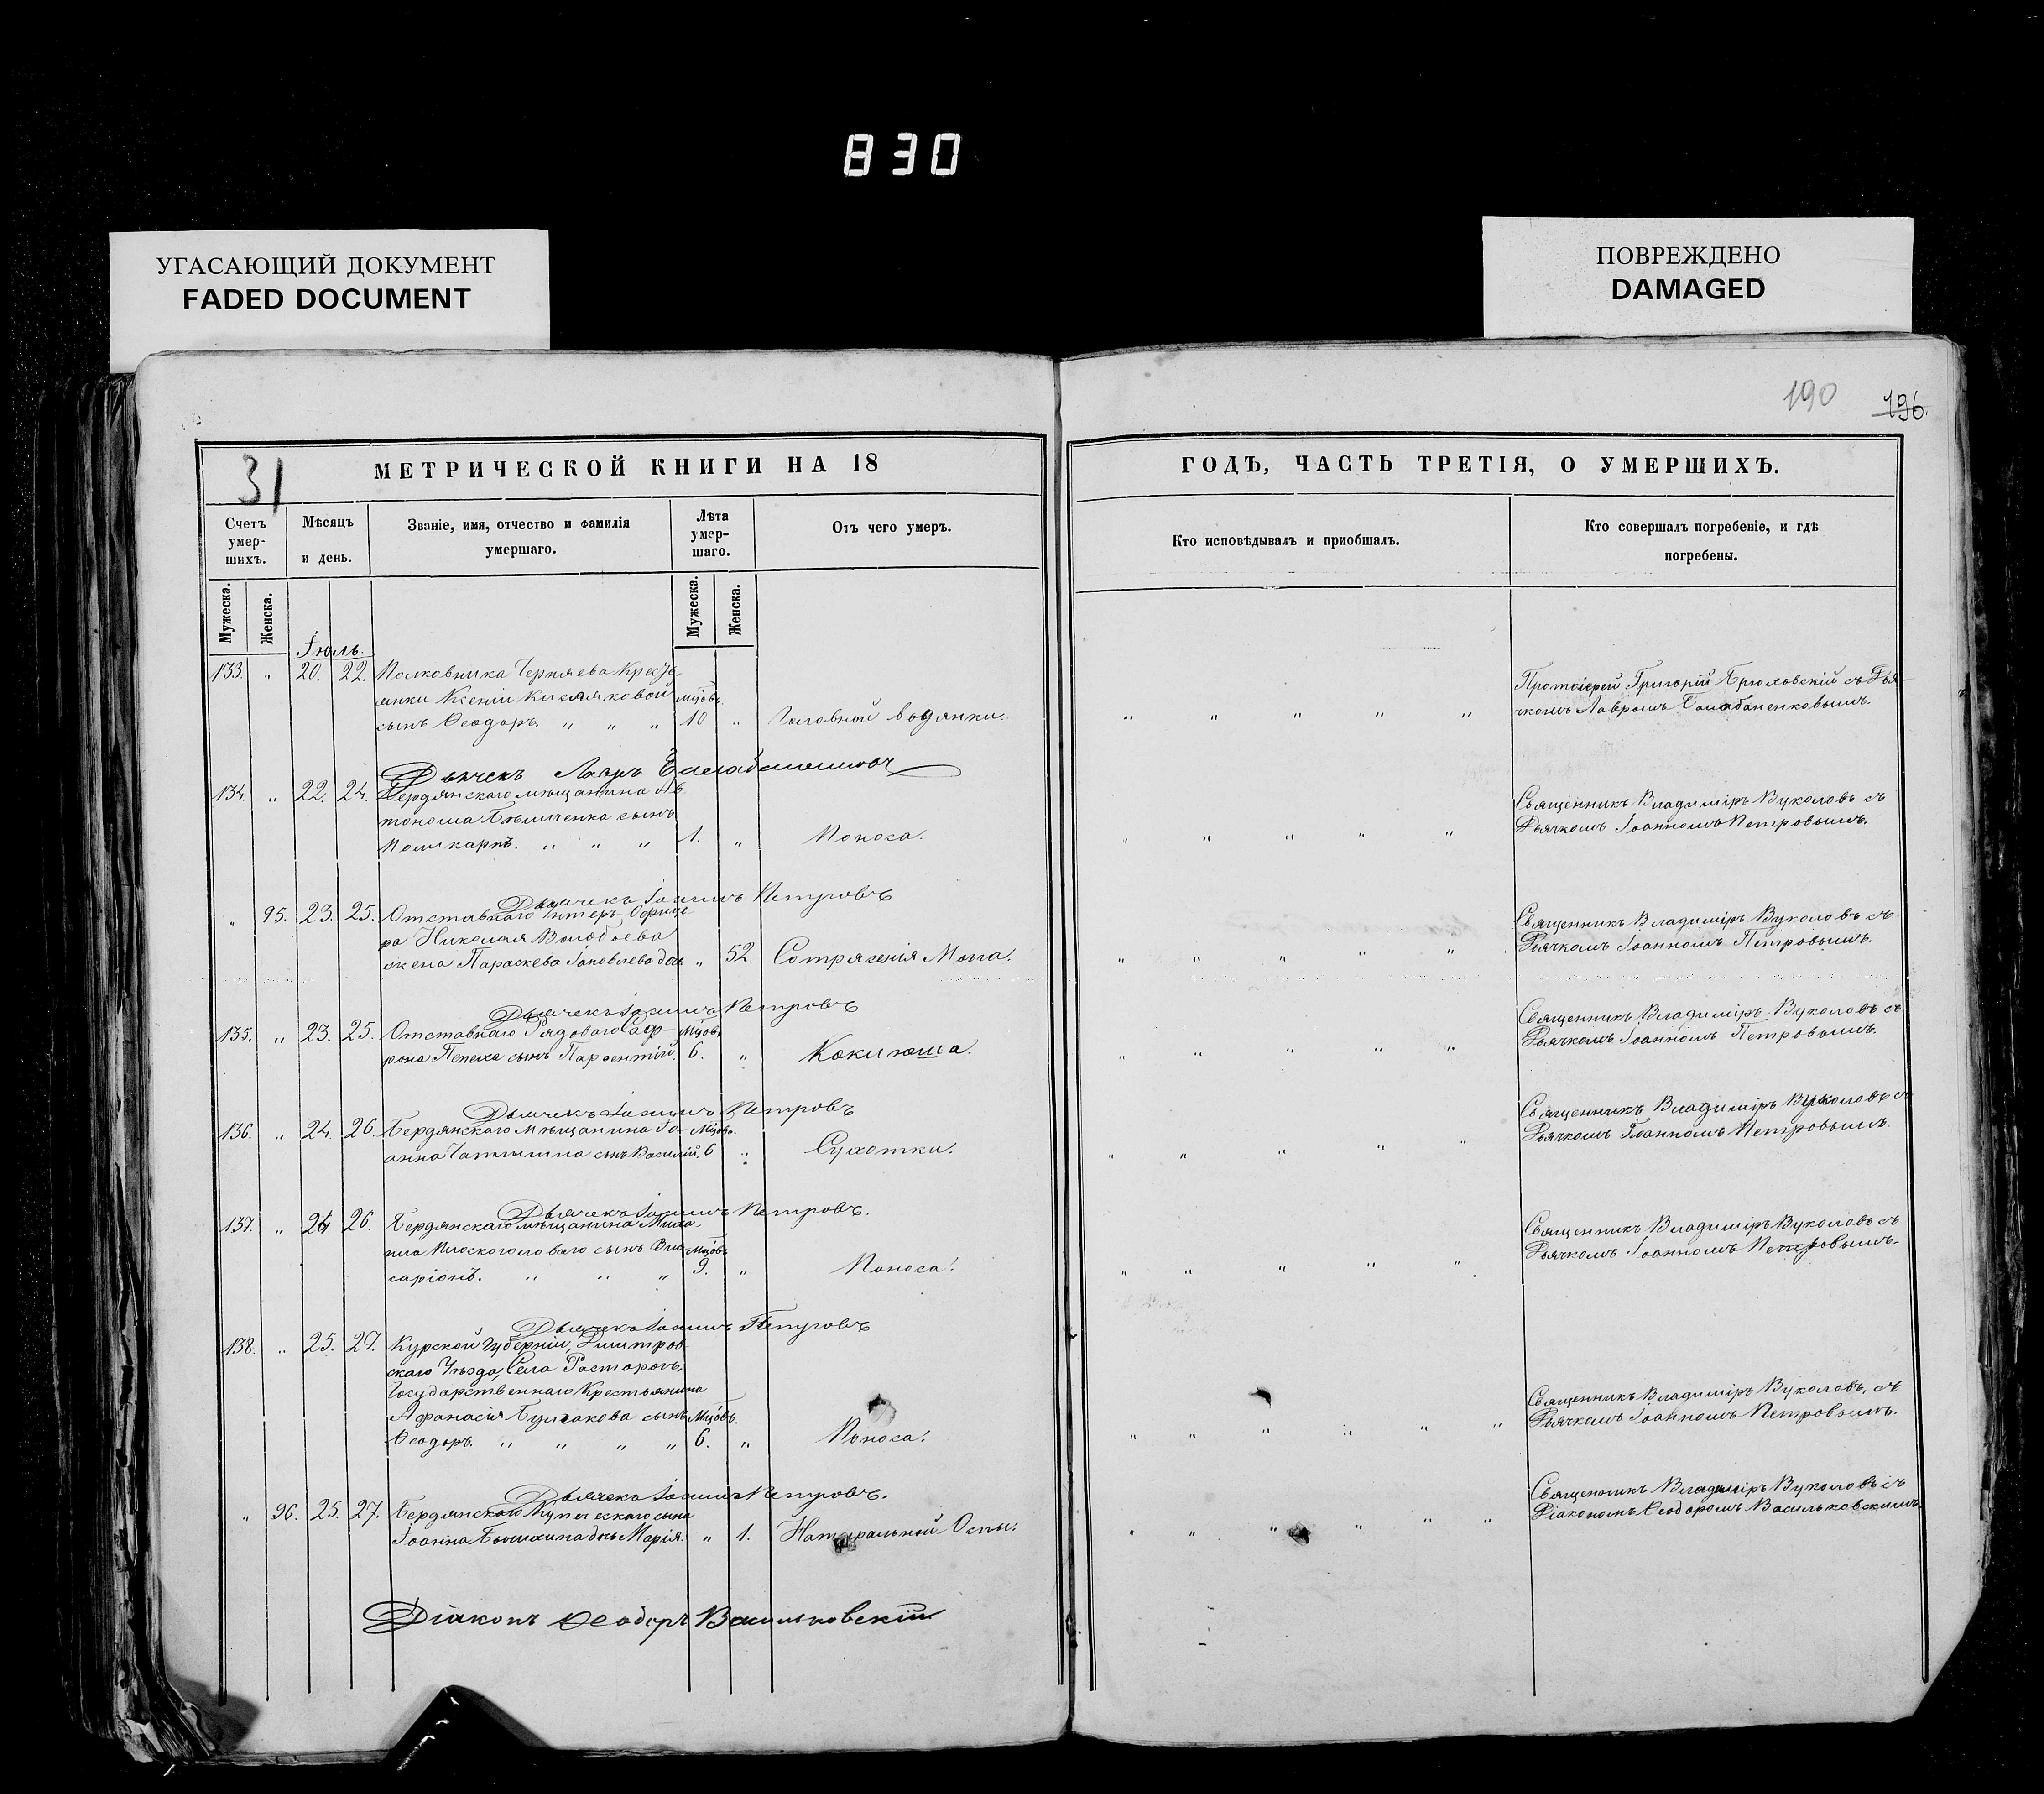 830
УГАСАЮЩИЙ ДОКУМЕНТ
FADED DOCUMENT
ПОВРЕЖДЕНО
DAMAGED
190
196.
31
МЕТРИЧЕСКОЙ КНИГИ НА 18
ГОДЪ, ЧАСТЬ ТРЕТІЯ, О УМЕРШИХЪ.
Счетъ умер-шихъ.
Мѣсяцъ и день.
Званіе, имя, отчество и фамилія умершаго.
Лѣта умер-шаго.
Отъ чего умеръ.
Кто исповѣдывалъ и пріобщалъ.
Кто совершалъ погребеніе, и гдѣ погребены.
Мужеска.
Женска.
Мужеска.
Женска.
Іюль.
133. " 20. 22. Полковника Черняева Кресть-
янки Ксеніи Кисляковой мцовъ
сынъ Ѳеодоръ. " " " 10 " Головной водянки.
" " " " "
Протоіерей Григорій Брюховскій съ Дья-
чкомъ Лавромъ Балабаненковымъ.
Дьячекъ Лавръ
134. " 22. 24. Бердянскаго мѣщанина Ав-
тонома сынъ
Поликарпъ. " " " 1. " Поноса.
" " " " "
Священникъ Владиміръ Вуколовъ съ
Дьячкомъ Іоанномъ Петровымъ.
Дьячекъ Іоаннъ Петровъ
" 95. 23. 25. Отставнаго Унтеръ-Офице-
ра Николая Воробьева
жена Параскева Іаковлева дочь " 52. Сотрясенія Мозга.
" " " " "
Священникъ Владиміръ Вуколовъ съ
Дьячкомъ Іоанномъ Петровымъ.
Дьячекъ Іоаннъ Петровъ
135. " 23. 25. Отставнаго Рядоваго Соф- Мцовъ
рона сынъ Парѳентій. 6. " Коклюша.
" " " " "
Священникъ Владиміръ Вуколовъ съ
Дьячкомъ Іоанномъ Петровымъ.
Дьячекъ Іоаннъ Петровъ
136. " 24. 26. Бердянскаго Мѣщанина Іо- Мцовъ.
анна сынъ Василій. 6 " Сухотки.
" " " " "
Священникъ Владиміръ Вуколовъ съ
Дьячкомъ Іоанномъ Петровымъ.
Дьячекъ Іоаннъ Петровъ.
137. " 24 26. Бердянскаго мѣщанина Миха-
ила Плоскоголоваго сынъ Вис- Мцовъ
саріонъ. " " " 9. " Поноса.
" " " " "
Священникъ Владиміръ Вуколовъ съ
Дьячкомъ Іоанномъ Петровымъ.
Дьячекъ Іоаннъ Петровъ
138. " 25. 27. Курской Губерніи, Дмитров-
скаго Уѣзда, Села
Государственнаго Крестьянина
Афанасія Булгакова сынъ Мцовъ.
Ѳеодоръ. " " " " 6. " Поноса.
" " " " " "
Священникъ Владиміръ Вуколовъ, съ
Дьячкомъ Іоанномъ Петровымъ.
Дьячекъ Іоаннъ Петровъ.
" 96. 25. 27. Бердянскаго Купеческаго сына
Іоанна дочь Марія. " 1. Натуральной Оспы.
" " " " " "
Священникъ Владиміръ Вуколовъ съ
Діакономъ Ѳеодоромъ Васильковскимъ.
Діаконъ Ѳеодоръ Васильковскій